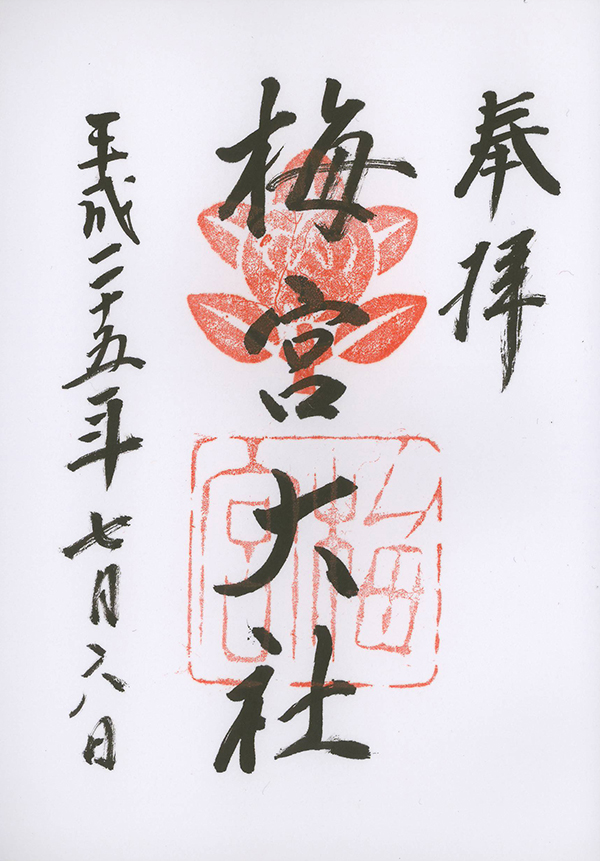 奉拝
梅宮大社
梅宮
平成二十五年七月六日